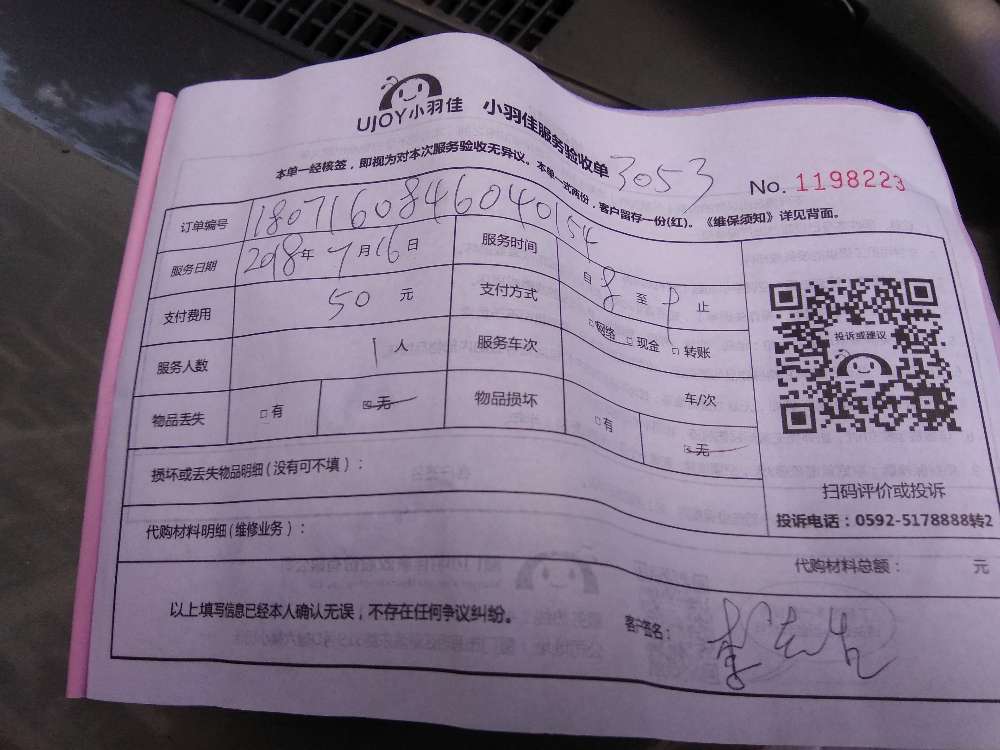 UJOY小羽佳 小羽佳服务验收单 3053
No. 1198223
本单一经核签，即视为对本次服务验收无异议。本单一式两份，客户留存一份(红)。《维保须知》详见背面。
订单编号 180716084604054
服务日期 2018年7月16日 服务时间 自8至 止
支付费用 50元 支付方式 □网络 □现金 □转账
服务人数 1人 服务车次 车/次
物品丢失 □有 ☑无 物品损坏 □有 ☑无
损坏或丢失物品明细(没有可不填)：
代购材料明细(维修业务)：
代购材料总额： 元
投诉或建议
扫码评价或投诉
投诉电话：0592-5178888转2
以上填写信息已经本人确认无误，不存在任何争议纠纷。
客户签名：李先生